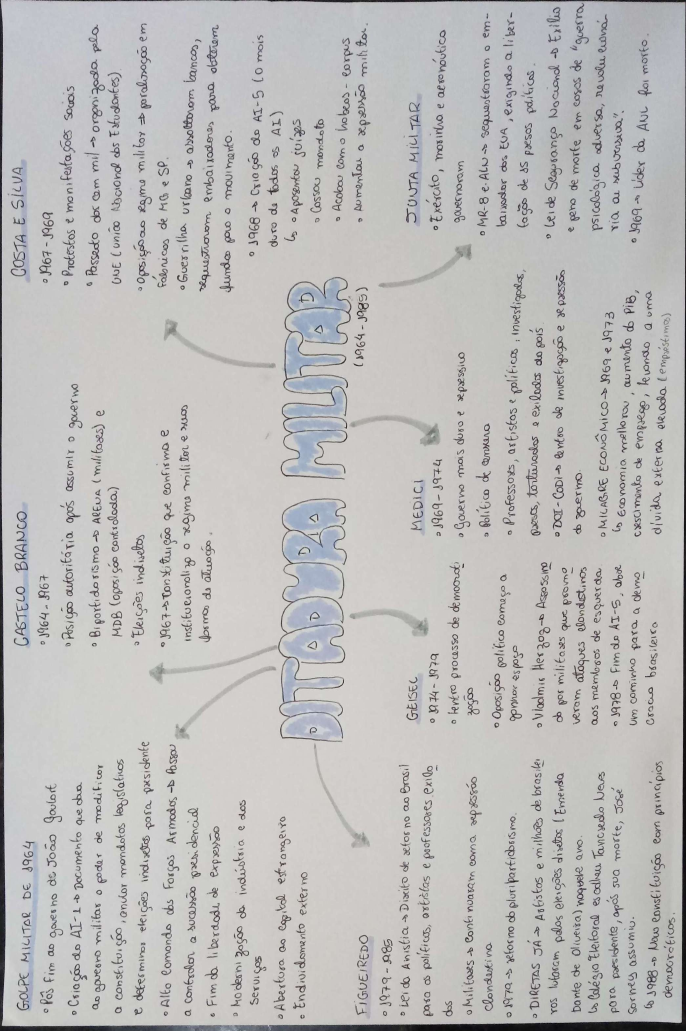 GOLPE MILITAR DE 1964
• Pôs fim ao governo de João Goulart
• Criação do AI-1 → Documento que dava
ao governo militar o poder de modificar
a constituição, anular mandatos legislativos
e determinar eleições indiretas para presidente
• Alto comando das Forças Armadas → Passou
a controlar a sucessão presidencial
• Fim da liberdade de expressão
• Modernização da indústria e dos
Serviços
• Abertura ao capital estrangeiro
• Endividamento externo
CASTELO BRANCO
• 1964-1967
• Posição autoritária após assumir o governo
• Bipartidarismo → ARENA (militares) e
MDB (oposição controlada)
• Eleições indiretas
• 1967 → Constituição que confirma e
institucionaliza o regime militar e suas
formas de atuação.
COSTA E SILVA
• 1967-1969
• Protestos e manifestações sociais
• Passeata dos cem mil → organizada pela
UNE (União Nacional dos Estudantes)
• Oposição ao regime militar → paralisação em
fábricas de MG e SP.
• Guerrilha urbana → assaltaram bancos,
sequestraram embaixadores para obterem
fundos para o movimento.
• 1968 → Criação do AI-5 (o mais
duro de todos os AI)
↳ • Aposentou juízes
• Cassou mandato
• Acabou com o habeas-corpus
• Aumentou a repressão militar.
DITADURA MILITAR
(1964-1985)
FIGUEIREDO
• 1979-1985
• Lei da Anistia → Direito de retorno ao Brasil
para os políticos, artistas e professores exila
dos
• Militares → Continuaram com a repressão
clandestina
• 1979 → retorno do pluripartidarismo.
• DIRETAS JÁ → Artistas e milhões de brasilei
ros lutaram pelas eleições diretas (Emenda
Dante de Oliveira) naquele ano.
↳ Colégio Eleitoral escolheu Tancredo Neves
para presidente, após sua morte, José
Sarney assumiu.
↳ 1988 → Nova constituição com princípios
democráticos.
GEISEL
• 1974-1979
• Lento processo de democrati
zação
• Oposição política começa a
ganhar espaço
• Vladmir Herzog → Assassina
do por militares que promo
veram ataques clandestinos
aos membros de esquerda
• 1978 → Fim do AI-5, abre
um caminho para a demo
cracia brasileira
MEDICI
• 1969-1974
• Governo mais duro e repressivo
• Política de censura
• Professores, artistas e políticos: investigados,
presos, torturados e exilados do país
• DOI-CODI → Centro de investigação e repressão
do governo.
• MILAGRE ECONÔMICO → 1969 e 1973
↳ Economia melhorou, aumento do PIB,
crescimento de emprego, levando a uma
dívida externa elevada (empréstimos)
JUNTA MILITAR
• Exército, marinha e aeronáutica
governaram
• MR-8 e ALN → Sequestraram o em-
baixador dos EUA, exigindo a liber-
tação de 15 presos políticos.
• Lei de Segurança Nacional → Exílio
e pena de morte em casos de "guerra
psicológica adversa, revolucioná
ria ou subversiva".
• 1969 → Líder da ANL foi morto.